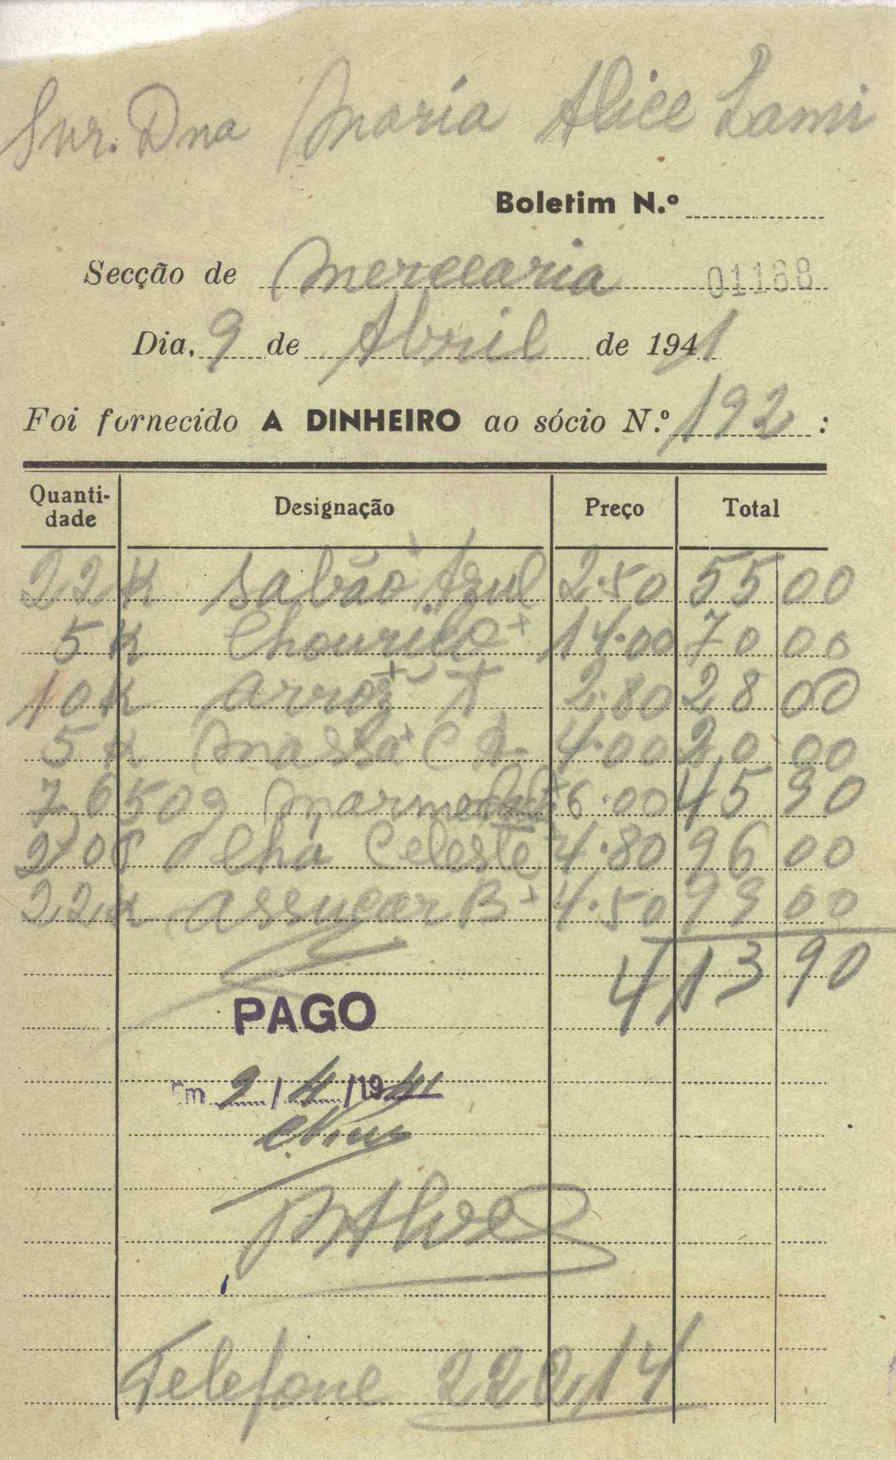 Snr. Dna Maria Alice Lami
Boletim N.º
Secção de Mercearia 01188
Dia, 9 de Abril de 1941
Foi fornecido A DINHEIRO ao sócio N.º 192 :
Quanti-dade Designação Preço Total
22 K Sabão Azul 2.50 55 00
5 K Chouriço 14.00 70 00
10 K Arroz 2.80 28 00
5 K Massa C 4.00 20 00
7,650g 6.00 45 90
Celeste 4.80 96 00
22 K Assucar B 4.50 99 00
413 90
PAGO
Em 9/4/1941
Telefone 22014